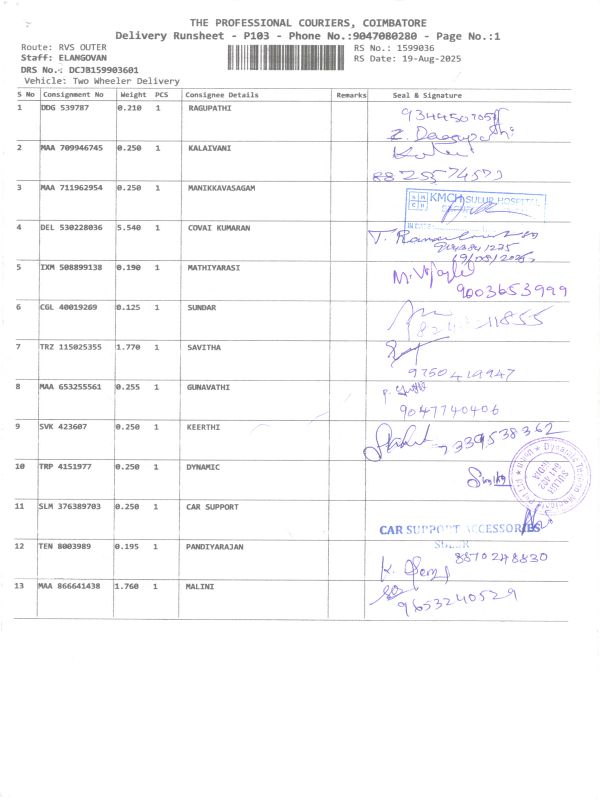 THE PROFESSIONAL COURIERS, COIMBATORE
Delivery Runsheet - P103 - Phone No.:9047080280 - Page No.:1
Route: RVS OUTER RS No.: 1599036
Staff: ELANGOVAN RS Date: 19-Aug-2025
DRS No.: DCJB159903601
Vehicle: Two Wheeler Delivery
S No Consignment No Weight PCS Consignee Details Remarks Seal & Signature
1 DDG 539787 0.210 1 RAGUPATHI
2 MAA 709946745 0.250 1 KALAIVANI
8825574573
3 MAA 711962954 0.250 1 MANIKKAVASAGAM
KMCH SULUR HOSPITAL
4 DEL 530228036 5.540 1 COVAI KUMARAN
19/08/2025
5 IXM 508899138 0.190 1 MATHIYARASI
9003653999
6 CGL 40019269 0.125 1 SUNDAR
11855
7 TRZ 115025355 1.770 1 SAVITHA
9750419947
8 MAA 653255561 0.255 1 GUNAVATHI
9047740406
9 SVK 423607 0.250 1 KEERTHI
7339538362
10 TRP 4151977 0.250 1 DYNAMIC
SULUR
641 402
INDIA
11 SLM 376389703 0.250 1 CAR SUPPORT
CAR SUPPORT ACCESSORIES
SULUR
12 TEN 8003989 0.195 1 PANDIYARAJAN 8870248830
13 MAA 866641438 1.760 1 MALINI
9653240529